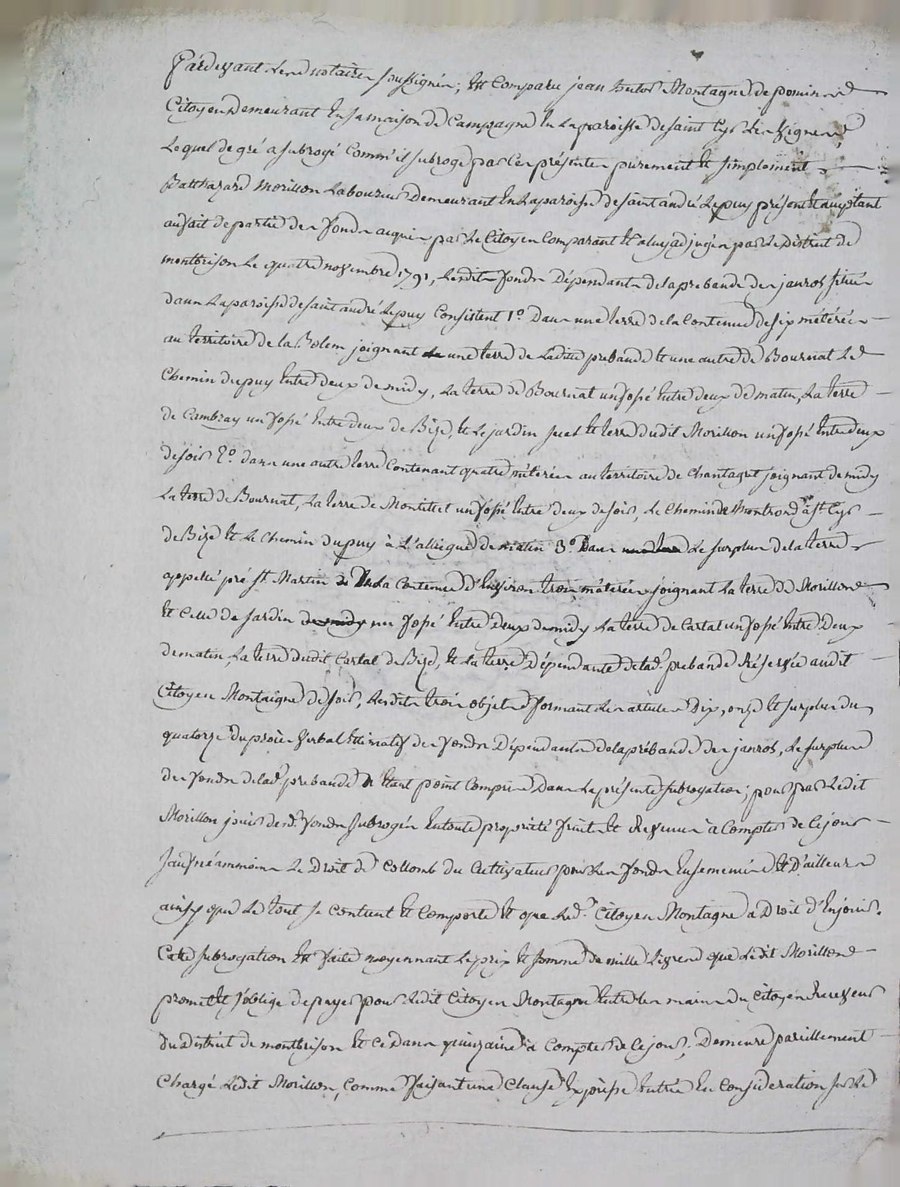 Pardevant Les notaires soussignés; est Comparu jean hector Montagne de pomin
Citoyen Demeurant En sa maison de Campagne En La paroisse de saint Cyr Les Vignes
Lequel de gré a subrogé Comm'il subroge par Ces présentes purement et simplement
Balthazard Morillon Laboureur Demeurant En La paroisse de saint andré Le puy présent et acceptant
au fait de partie des fonds acquis par Le Citoyen Comparant et a luy adjugés par Le District de
montbrison Le quatre novembre 1791, Lesdits fonds Dépendants de la prebande des janros située
dans La paroisse de saint andré Le puy Consistent 1º Dans une terre de la Contenue de six méterées
au territoire de la Bolem joignant une terre de Ladite prebande et une autre de Bournat Le
Chemin du puy Entre deux de midy, La terre de Bournat un fossé Entre deux de matin, La terre
de Cambray un fossé Entre deux de Bize, et Le jardin et terre dudit Morillon un fossé Entre deux
de soir 2º dans une autre terre Contenant quatre méterées au territoire de Chantagret joignant de midy
La terre de Bournat, La terre de Montillet un fossé Entre deux de soir, Le Chemin de Montrond a St Cyr
de Bize et Le Chemin du puy à L'allegue de matin 3º Dans Le surplus de la terre
appellé pré St Martin de La Contenue d'Environ trois méterées joignant La terre de Morillon
et Celle de Jardin un fossé Entre Deux de midy La terre de Cartal un fossé Entre Deux
de matin, La terre dudit Cartal de Bize, et La terre Dépendante de lade prebande Réservée audit
Citoyen Montaigne de soir, Lesdits trois objets formant Les articles Dix, onze et surplus du
quatorze du procès Verbal Estimatif des fonds Dépendants de la prébande des janros, Le surplus
des fonds de lade prebande N'étant point Compris Dans La présente subrogation; pour par Ledit
Morillon jouir desds fonds subrogés En toute propriété fruits et Revenus à Compter de Ce jour
sauf néammoins Le Droit de Collomb du Cultivateur pour Les fonds Ensemencés et D'ailleurs
ainsy que Le tout se Contient et Comporte et que Led. Citoyen Montagne a Droit d'En jouir.
Cette subrogation est faite moyennant Le prix et somme de mille Livres que Ledit Morillon
promet et s'oblige de payer pour Ledit Citoyen Montagne Entre les mains du Citoyen Receveur
du District de montbrison et Ce Dans quinzaine à Compter de Ce jour; Demeure pareillement
Chargé Ledit Morillon, Comme faisant une Clause Expresse Entrée En Considération sur Le